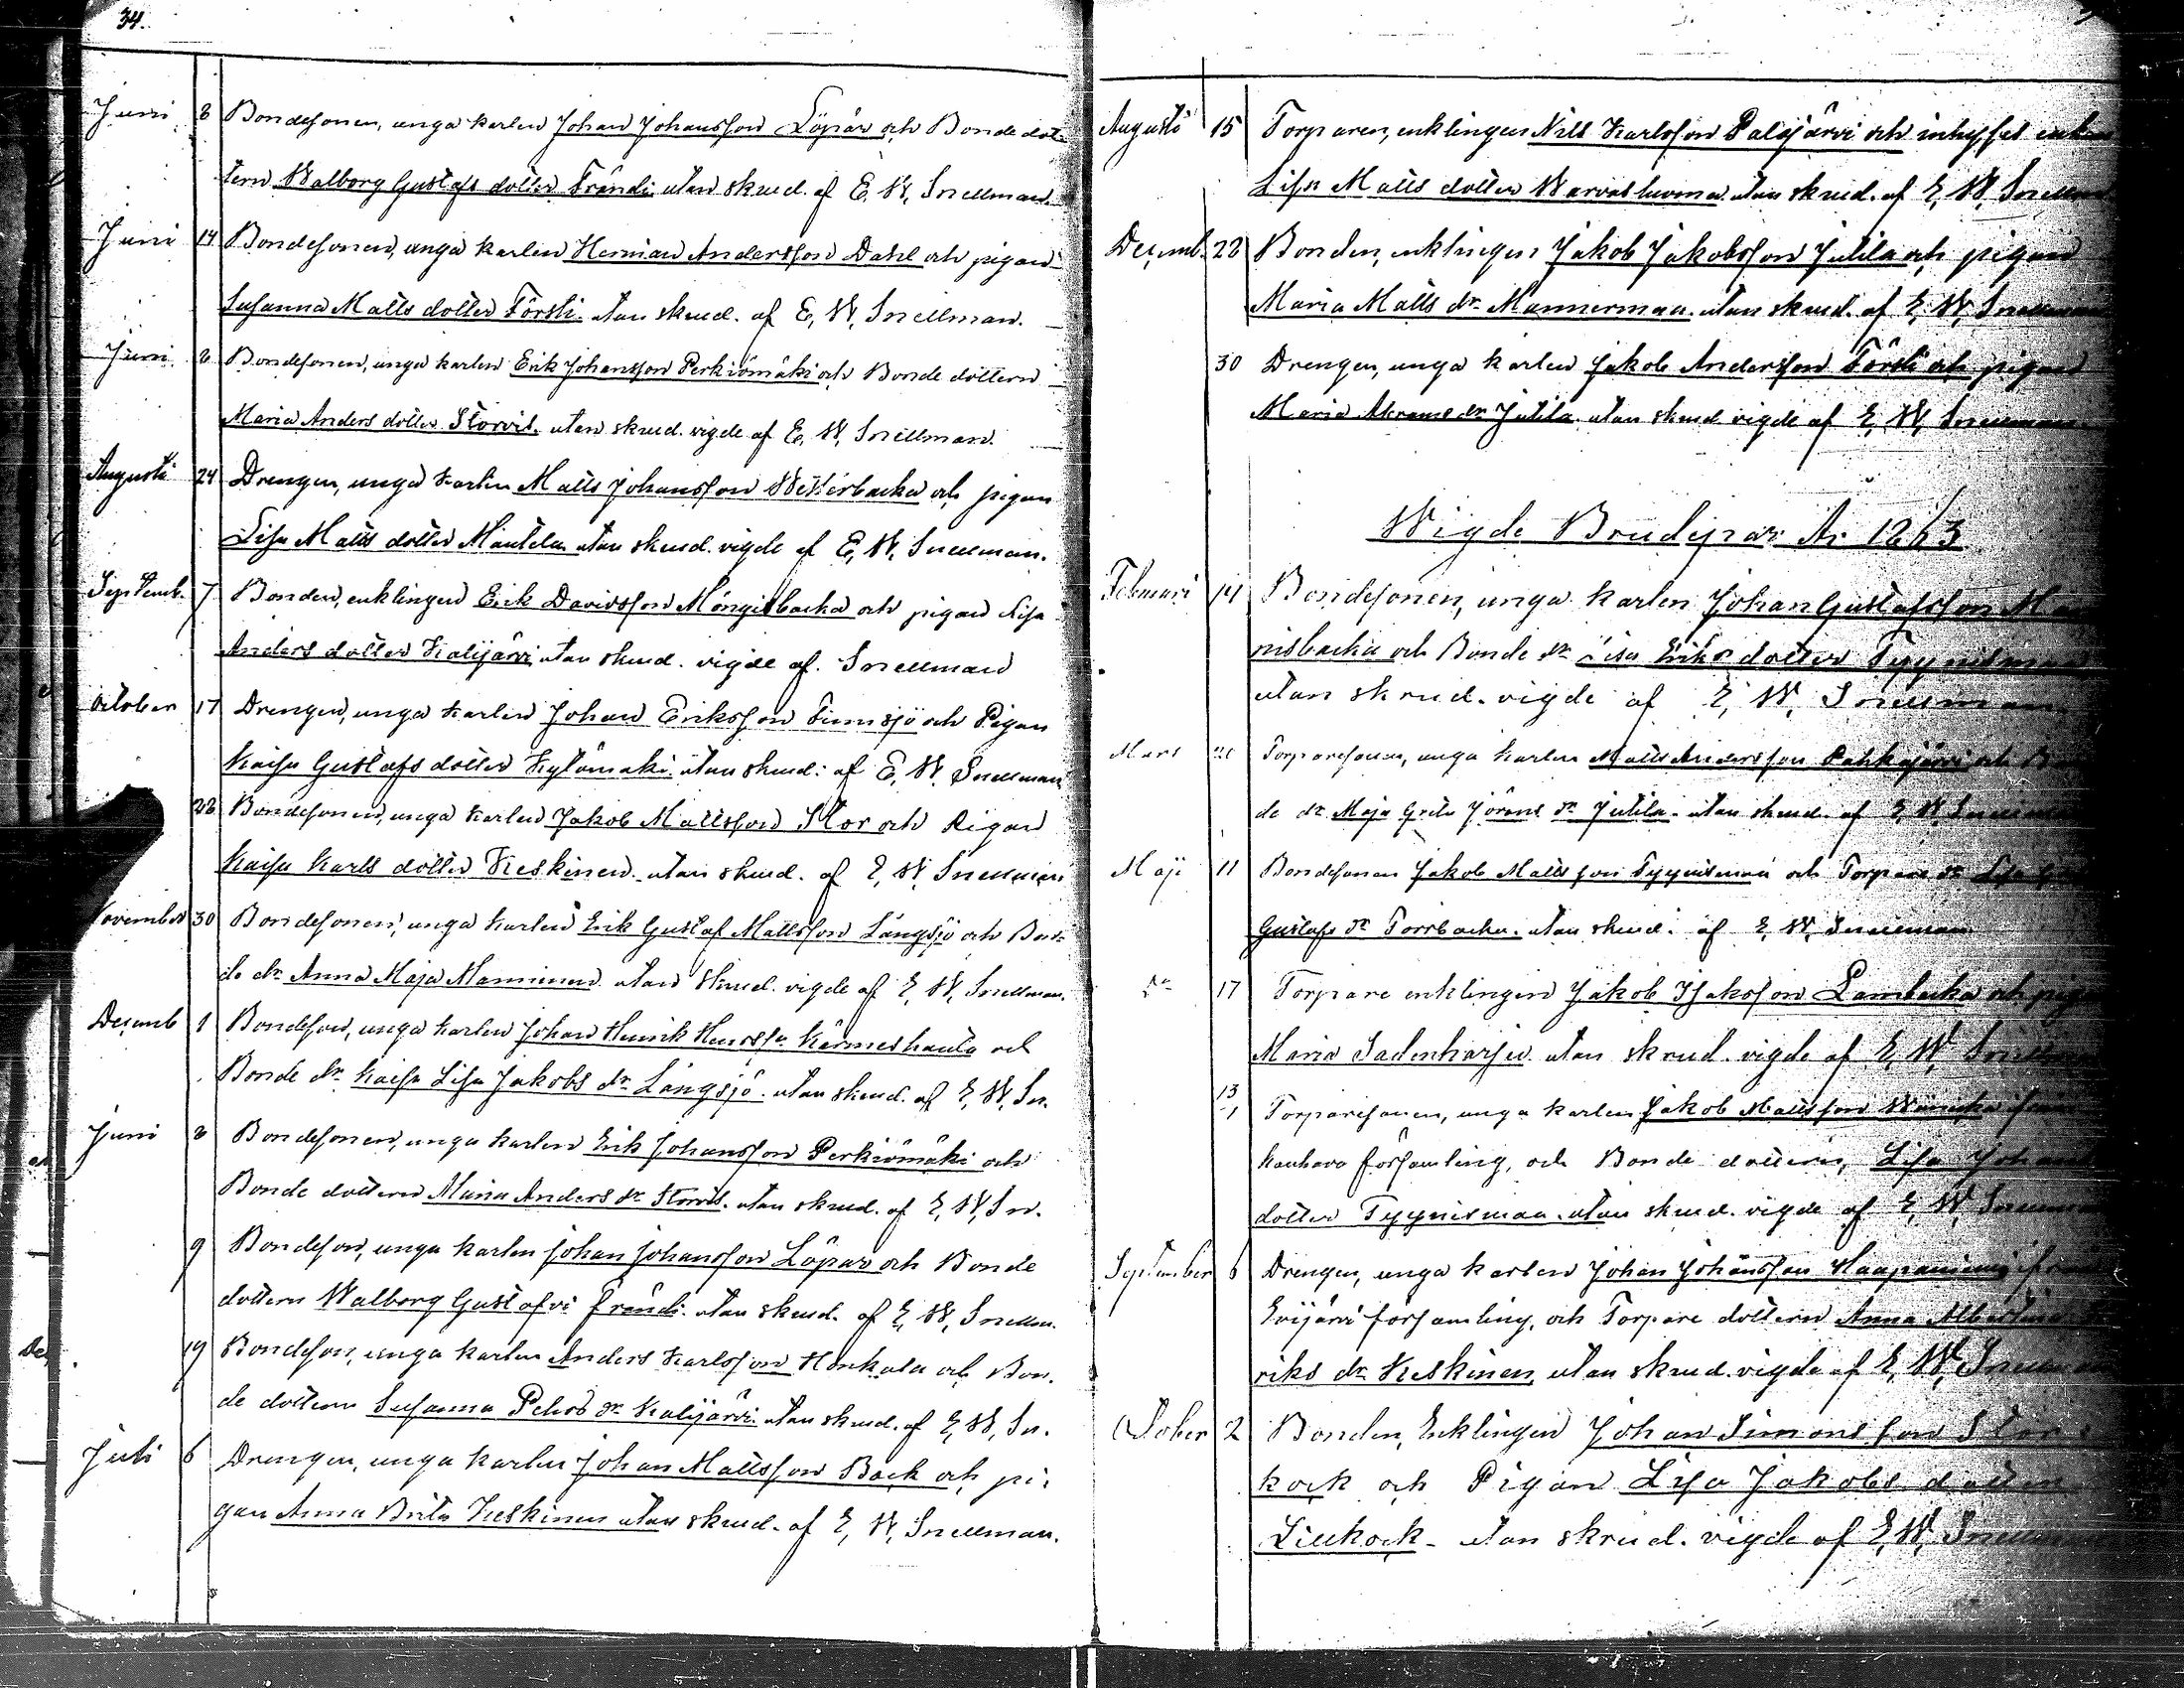 34.
Juni 8 Bondesonen, unga karlen Johan Johansson Löpar och Bonde dot-
tern Walborg Gustafs dotter Frändi utan skrud. af E. W. Snellman.
Juni 14 Bondesonen, unga karlen Herman Andersson Dahl och pigan
Susanna Matts dotter Försti. utan skrud. af E. W. Snellman.
Juni 8 Bondesonen, unga karlen Erik Johansson Perkiömäki och Bonde dottern
Maria Anders dotter Storvis. utan skrud. vigde af E. W. Snellman.
Augusti 24 Drengen, unga karlen Matts Johansson Westerbacka och pigan
Lisa Matts dotter Mäntela utan skrud. vigde af E. W. Snellman.
Septemb. 7 Bonden, enklingen Erik Davidsson Möngisbacka och pigan Lisa
Anders dotter Kalijärvi utan skrud. vigde af. Snellman
October 17 Drengen, unga karlen Johan Eriksson Finnsjö och Pigan
Kaisa Gustafs dotter Kytömäki utan skrud. af E. W. Snellman
28 Bondesonen, unga karlen Jakob Mattsson Stor och Pigan
Kaisa Karls dotter Keskinen. utan skrud. af E. W. Snellman
November 30 Bondesonen, unga karlen Erik Gustaf Mattsson Långsjö och Bon-
de dr Anna Maja Manninen. utan skrud. vigde af E. W. Snellman.
Decemb 1 Bondeson, unga karlen Johan Henrik Henrss. Kärmeshauta och
Bonde dr. Kaisa Lisa Jakobs dr Långsjö. utan skrud. af E. W. Sn.
Juni 8 Bondesonen, unga karlen Erik Johansson Perkiömäki och
Bonde dottern Maria Anders dr Storvis. utan skrud. af E. W. Sn.
9 Bondeson, unga karlen Johan Johansson Löpar och Bonde
dottern Walborg Gustafvi Frändi. utan skrud. af E. W. Snellm.
19 Bondeson, unga karlen Anders Karlsson Honkala och Bon-
de dottern Susanna Pehrs dr Kalijärvi utan skrud. af E. W. Sn.
Juli 6 Drengen, unga karlen Johan Mattsson Back och pi-
gan Anna Brita Keskinen utan skrud. af E. W. Snellman.
Augusti 15 Torparen, enklingen Nils Karlsson Palojärvi och inhyses
Lisa Matts dotter utan skrud. af E. W. Snellman
Decemb. 28 Bonden, enklingen Jakob Jakobsson Jutila och pigan
Maria Matts dr Mannermaa. utan skrud. af E. W. Snellman
30 Drengen, unga karlen Jakob Andersson Försti och pigan
Maria dr Jutila. utan skrud vigde af E. W. Snellman.
Wigde Brudepar År 1863
Februari 14 Bondesonen, unga karlen Johan Gustafsson
nisbacka och Bonde dr Lisa Eriks dotter Tyynismaa
utan skrud. vigde af E. W. Snellman
Mars Torparesonen, unga karlen Matts Andersson Pahkajärvi och
de dr Maja Greta Jörans dr Jutila. utan skrud. af E. W. Snellman
Maji 11 Bondesonen Jakob Mattsson Tyynismaa och Torpare dr Lisa
Gustafs dr Torrbacka. utan skrud. af E. W. Snellman
Do 17 Torpare enklingen Jakob Isaksson Lambacka och pigan
Maria Sadenharju. utan skrud. vigde af E. W. Snellman
13 Torparesonen, unga karlen Jakob Mattsson
Kauhava församling, och Bonde dottern, Lisa
dotter Tyynismaa. utan skrud. vigde af E. W. Snellman
September 6 Drengen, unga karlen Johan Johansson Haapaniemi ifrån
Evijärvi församling, och Torpare dottern Anna Albertina
riks dr Keskinen, utan skrud. vigde af E. W. Snellman
Octber 2 Bonden, Enklingen Johan Simonsson Stor-
kock och Pigan Lisa Jakobs dotter
Lillkock. utan skrud. vigde af E. W. Snellman